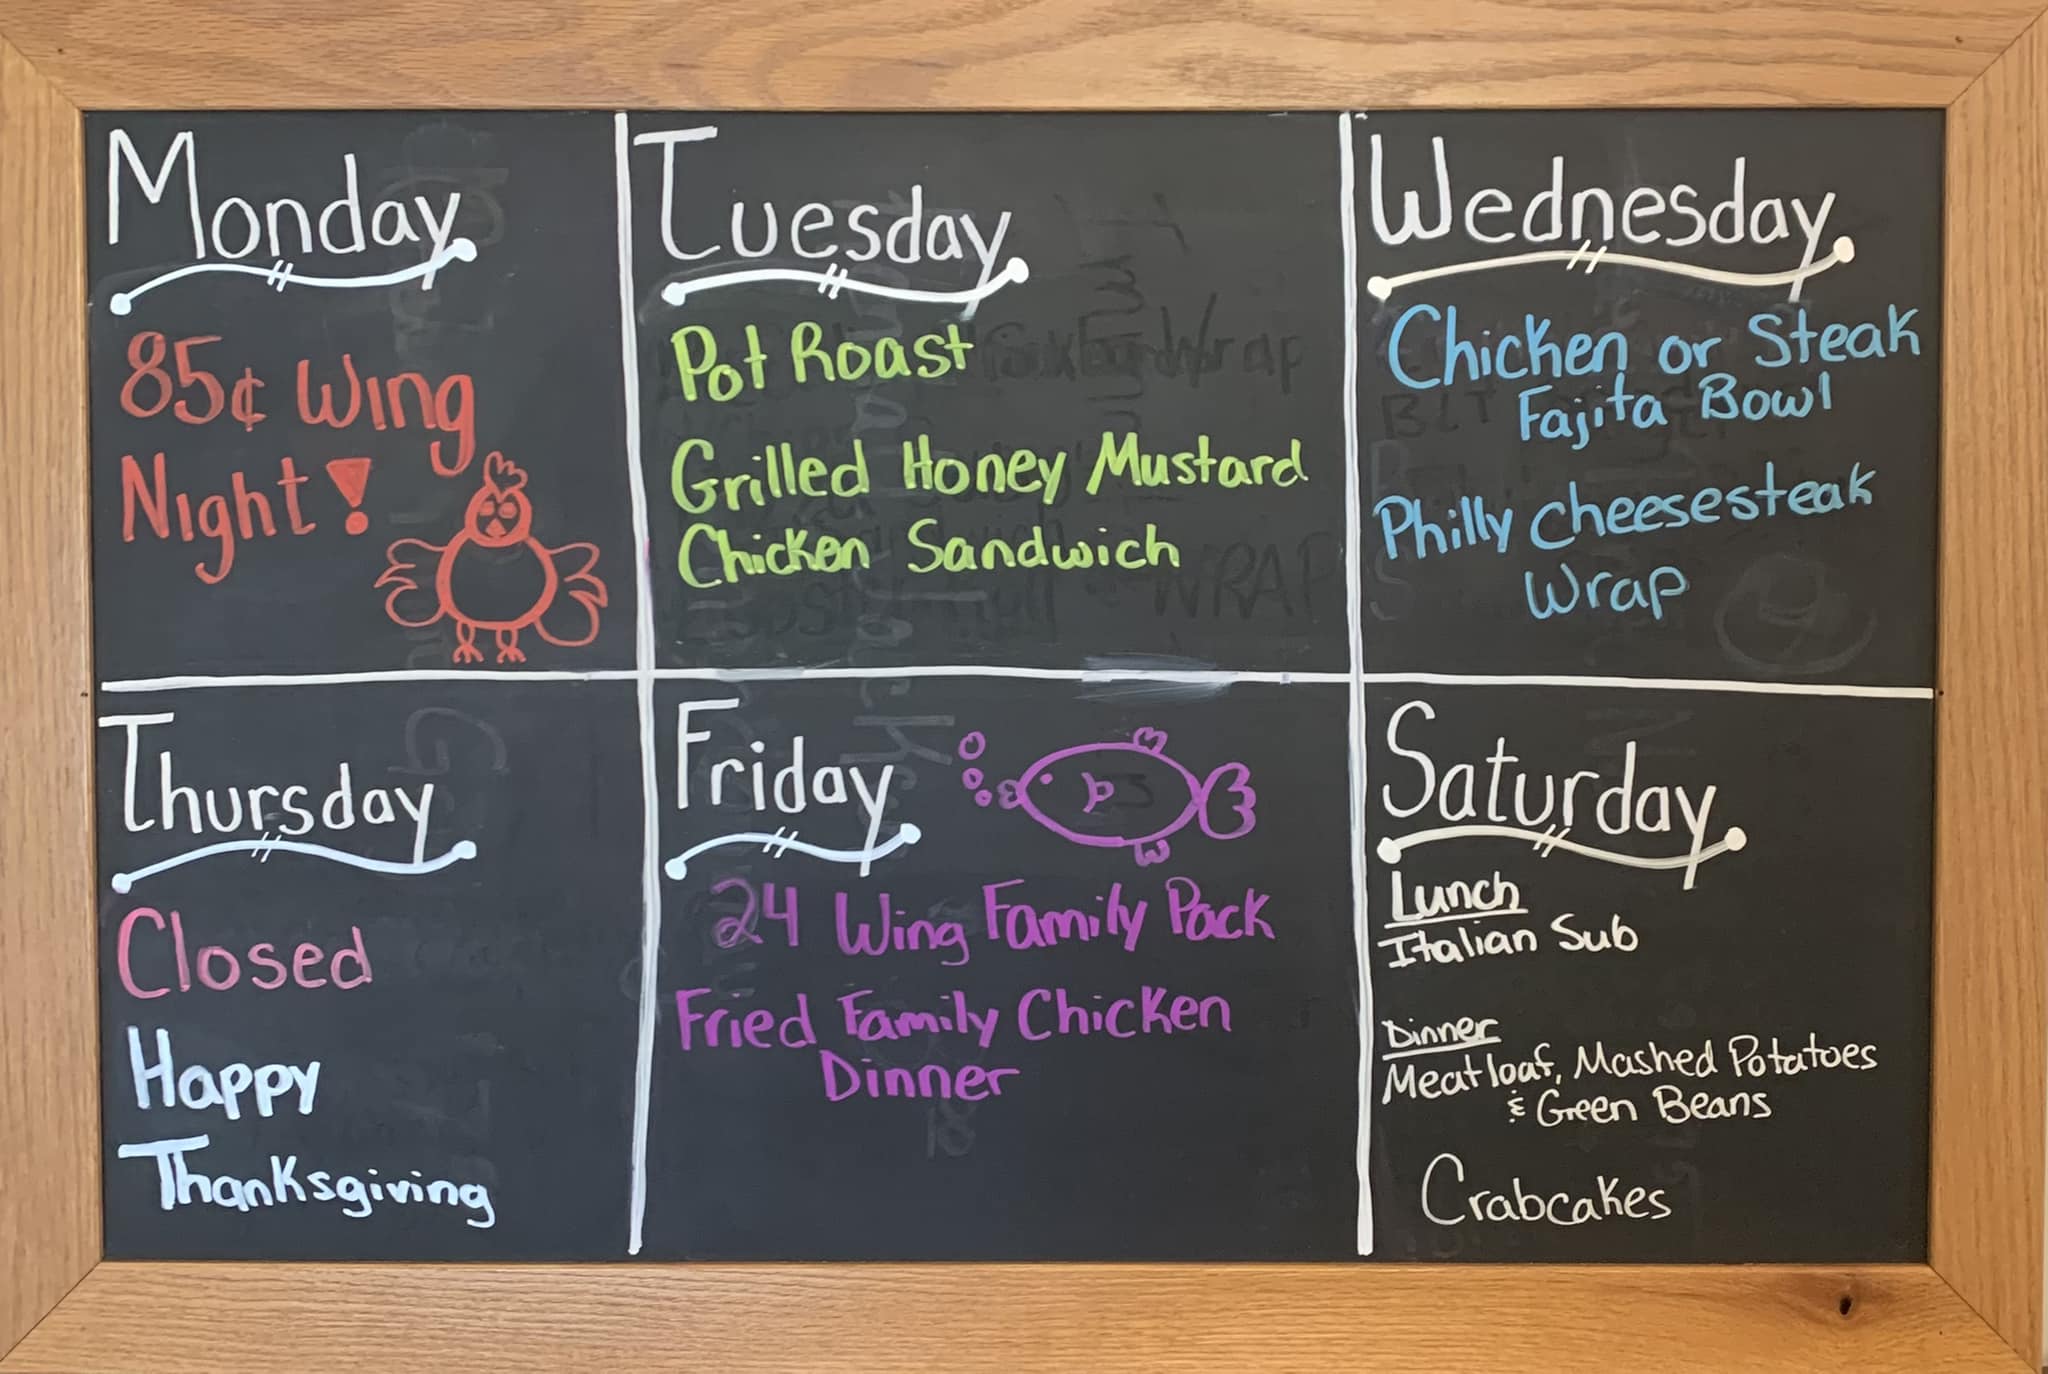 Monday
85¢ Wing
Night!
Tuesday
Pot Roast
Grilled Honey Mustard
Chicken Sandwich
Wednesday
Chicken or Steak
Fajita Bowl
Philly Cheesesteak
Wrap
Thursday
Closed
Happy
Thanksgiving
Friday
24 Wing Family Pack
Fried Family Chicken
Dinner
Saturday
Lunch
Italian Sub
Dinner
Meatloaf, Mashed Potatoes
& Green Beans
Crabcakes